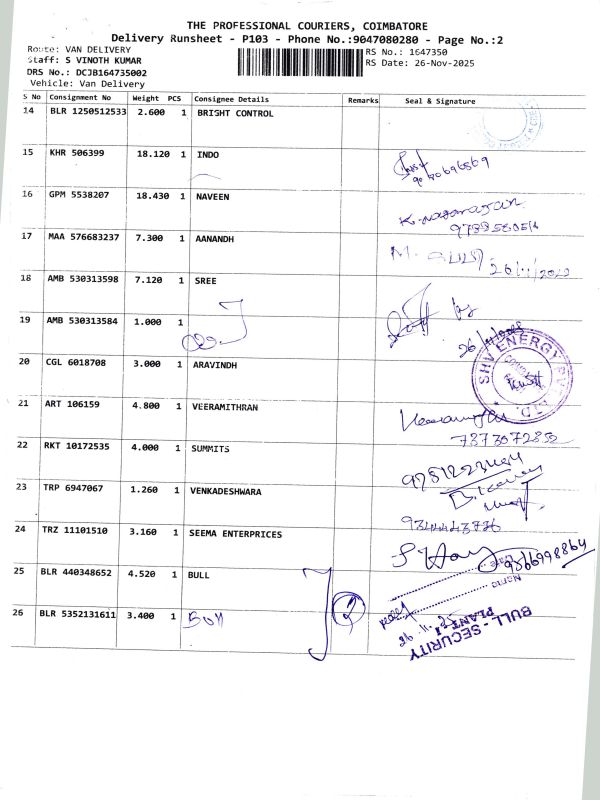 THE PROFESSIONAL COURIERS, COIMBATORE
Delivery Runsheet - P103 - Phone No.:9047080280 - Page No.:2
Route: VAN DELIVERY
Staff: S VINOTH KUMAR
DRS No.: DCJB164735002
Vehicle: Van Delivery
RS No.: 1647350
RS Date: 26-Nov-2025
S No Consignment No Weight PCS Consignee Details Remarks Seal & Signature
14 BLR 1250512533 2.600 1 BRISHT CONTROL
15 KHR 506399 18.120 1 INDO
16 GPM 5538207 18.430 1 NAVEEN
K. nagarajan
17 MAA 576683237 7.300 1 AANANDH
18 AMB 530313598 7.120 1 SREE
19 AMB 530313584 1.000 1
SHV ENERGY PVT. LTD.
20 CGL 6018708 3.000 1 ARAVINDH
21 ART 106159 4.800 1 VEERAMITHRAN
7373072852
22 RKT 10172535 4.000 1 SUMMITS
23 TRP 6947067 1.260 1 VENKADESHWARA
24 TRZ 11101510 3.160 1 SEEMA ENTERPRICES
9344443736
9566998864
25 BLR 440348652 4.520 1 BULL
Name
26 BLR 5352131611 3.400 1 Bull
BULL - SECURITY
PLANT 1